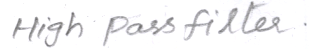 High pass filter.